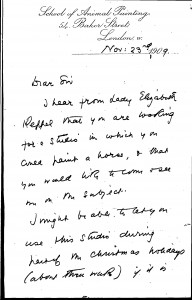 School of Animal Painting.
54, Baker Street,
London. W.
Nov: 23rd, 1909.
Dear Sir
I hear from Lady Elizabeth
that you are wanting
for a Studio in which you
could paint a horse, & that
you would like to come & see
me on the subject.
I might be able to let you
use this Studio during
part of the Christmas holidays
(about three weeks) if it is